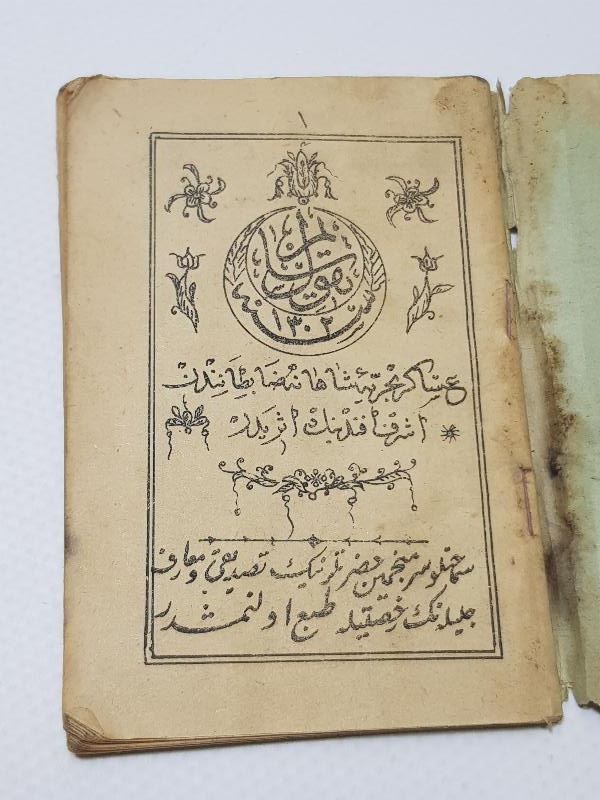 ١
تقويم سال
سنه ١٣٠٢
عساكر بحريۀ شاهانه ضابطانندن
اشرف افندينك اثريدر
سماحتلو سرمنجمين حضرتلرينك تصديقى و معارف
جليله نك رخصتيله طبع اولنمشدر